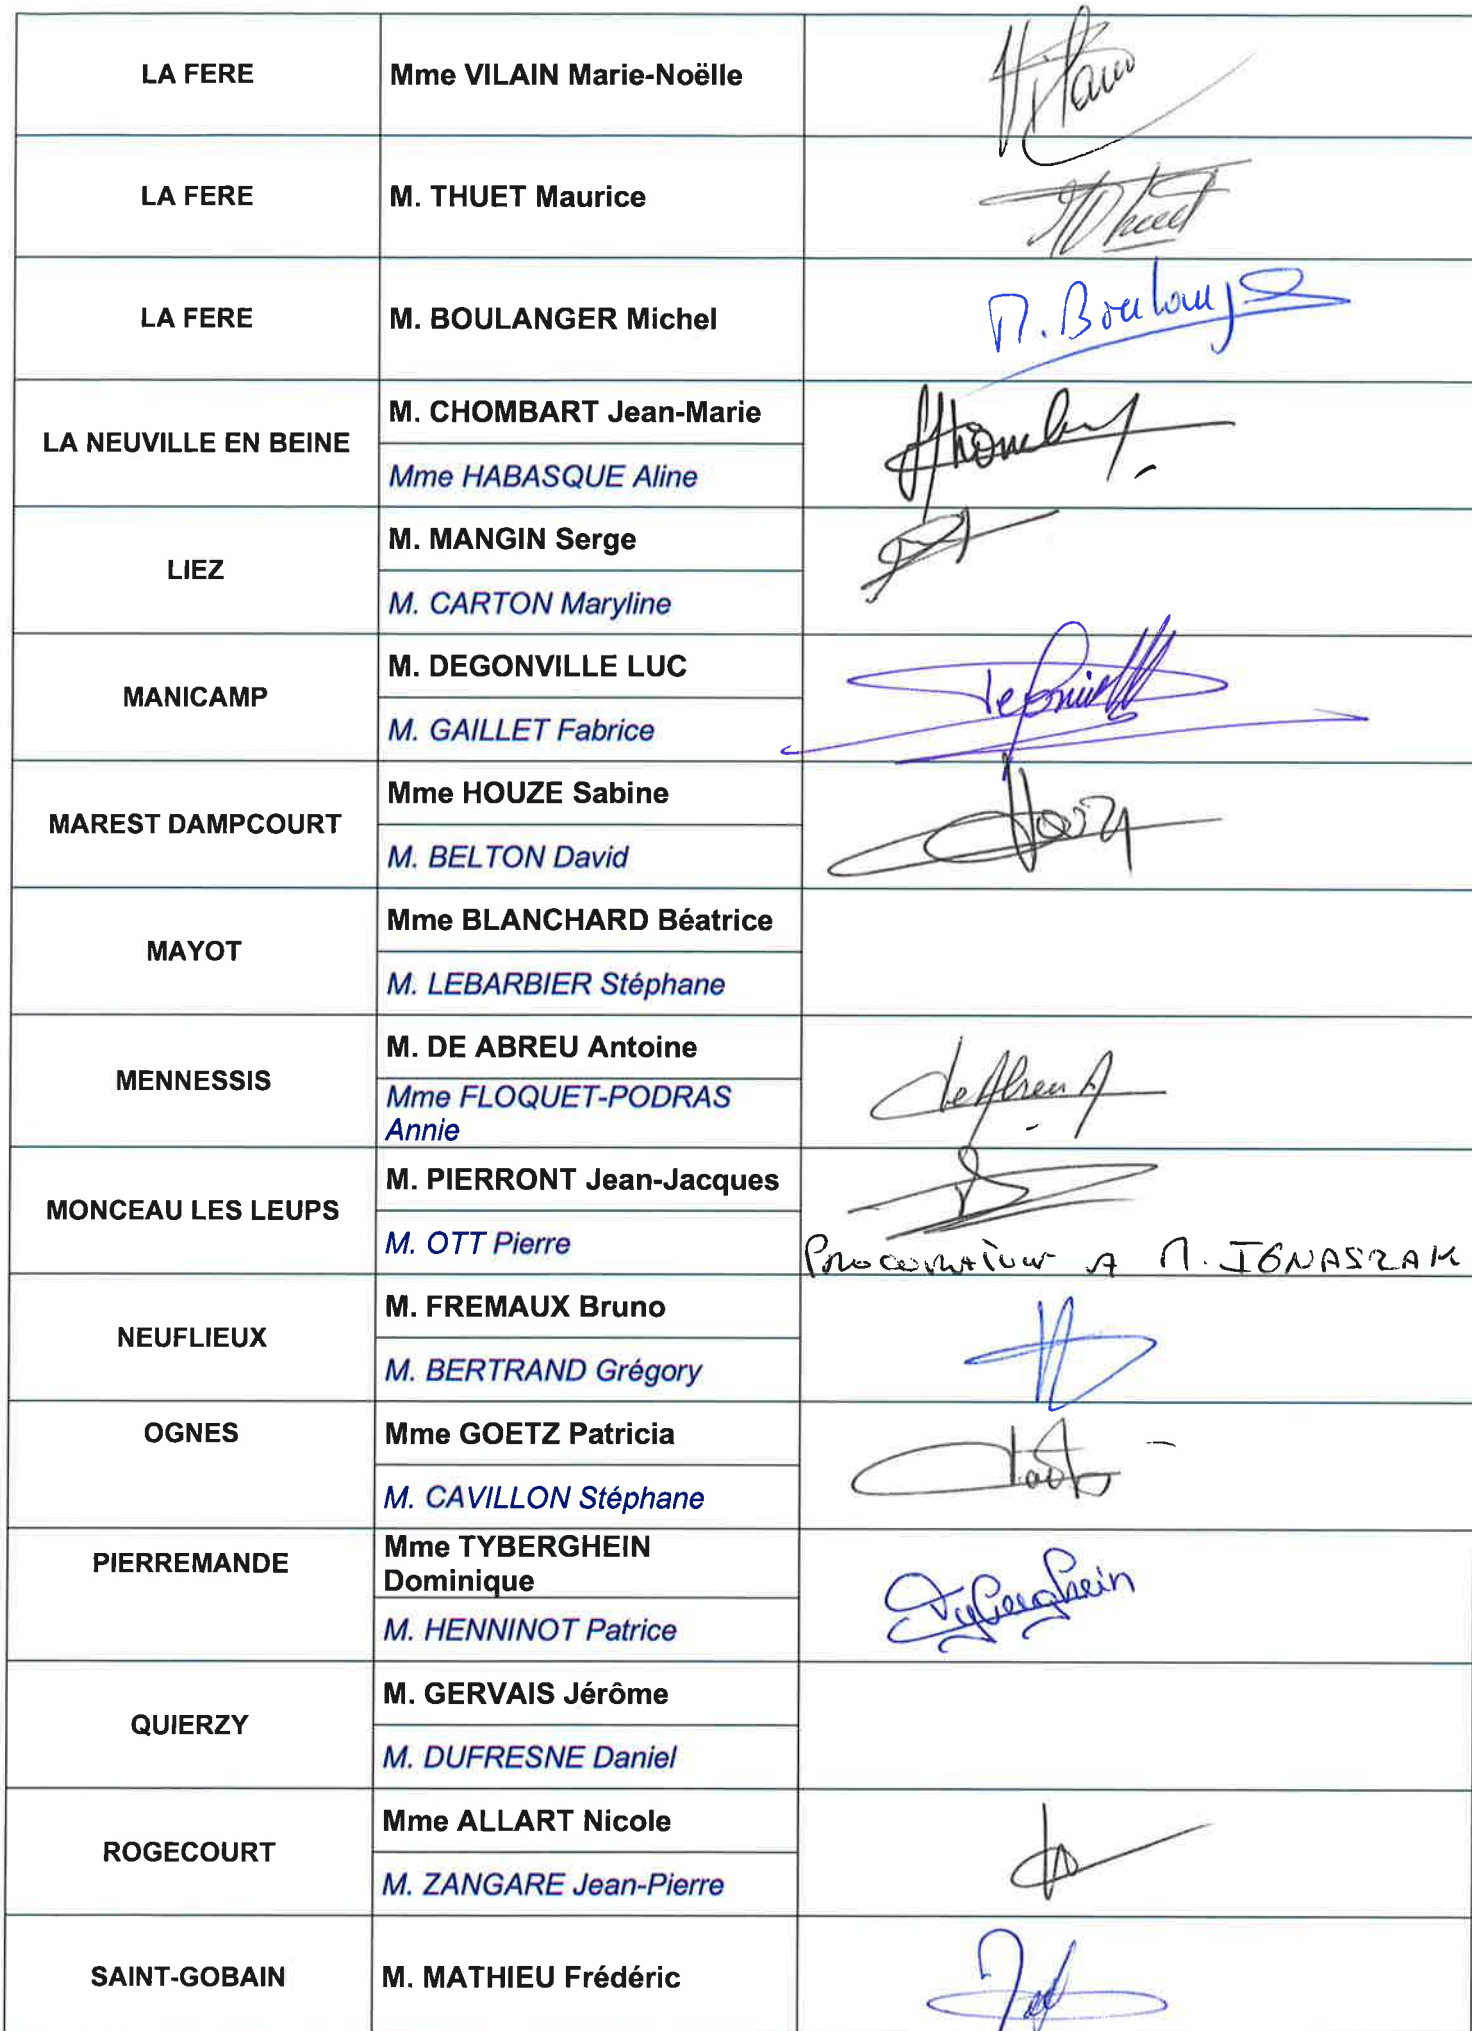 LA FERE
Mme VILAIN Marie-Noëlle
Vilain
LA FERE
M. THUET Maurice
Thuet
LA FERE
M. BOULANGER Michel
M. Boulanger
LA NEUVILLE EN BEINE
M. CHOMBART Jean-Marie
Mme HABASQUE Aline
LIEZ
M. MANGIN Serge
M. CARTON Maryline
MANICAMP
M. DEGONVILLE LUC
M. GAILLET Fabrice
MAREST DAMPCOURT
Mme HOUZE Sabine
M. BELTON David
MAYOT
Mme BLANCHARD Béatrice
M. LEBARBIER Stéphane
MENNESSIS
M. DE ABREU Antoine
Mme FLOQUET-PODRAS
Annie
De Abreu A
MONCEAU LES LEUPS
M. PIERRONT Jean-Jacques
M. OTT Pierre
A M. IGNASZAK
NEUFLIEUX
M. FREMAUX Bruno
M. BERTRAND Grégory
OGNES
Mme GOETZ Patricia
M. CAVILLON Stéphane
PIERREMANDE
Mme TYBERGHEIN
Dominique
M. HENNINOT Patrice
Tyberghein
QUIERZY
M. GERVAIS Jérôme
M. DUFRESNE Daniel
ROGECOURT
Mme ALLART Nicole
M. ZANGARE Jean-Pierre
SAINT-GOBAIN
M. MATHIEU Frédéric